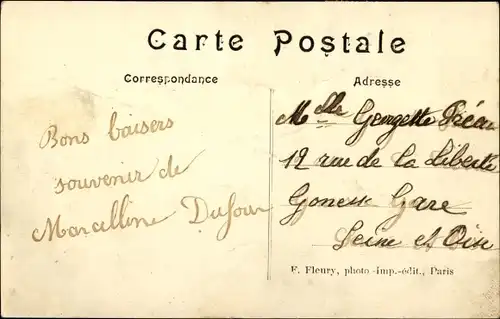 Carte Postale
Correspondance
Adresse
Bons baisers
souvenir de
Marcelline Dufour
Mlle Georgette
12 rue de la Liberté
Goness Gare
Seine et Oise
F. Fleury, photo-imp.-édit., Paris